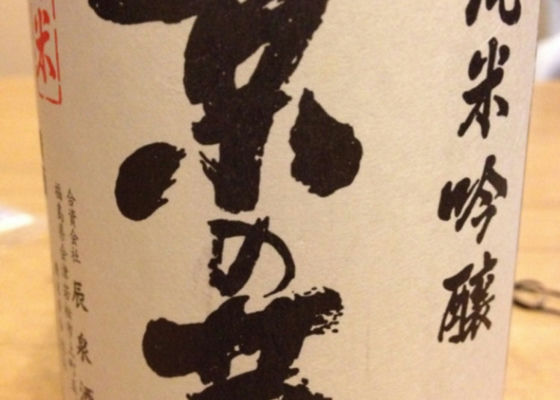 純米吟醸
京の華
米
合資会社 辰泉酒
福島県会津若松市上町